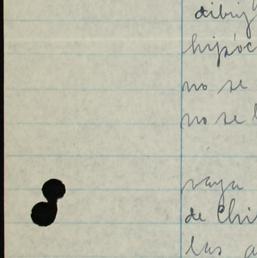 dibuj
hipóc
no se
no se l
vaya
de Chi
las a